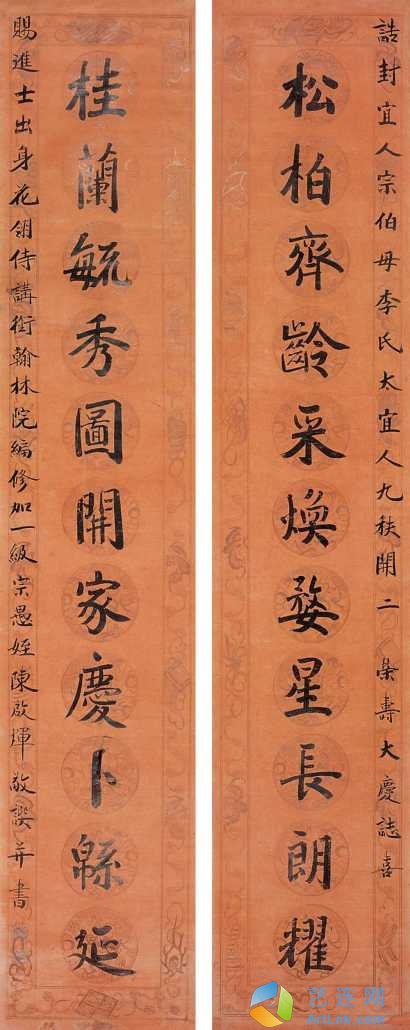 誥封宜人宗伯母李氏太宜人九秩開二 榮壽大慶誌喜
松柏齊齡采煥婺星長朗耀
桂蘭毓秀圖開家慶卜緜延
賜進士出身花翎侍講銜翰林院編修加一級宗愚姪陳啟煇敬譔并書
艺连网